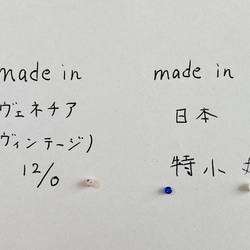 made in
ヴェネチア
ヴィンテージ)
12/0
made in
日本
特小